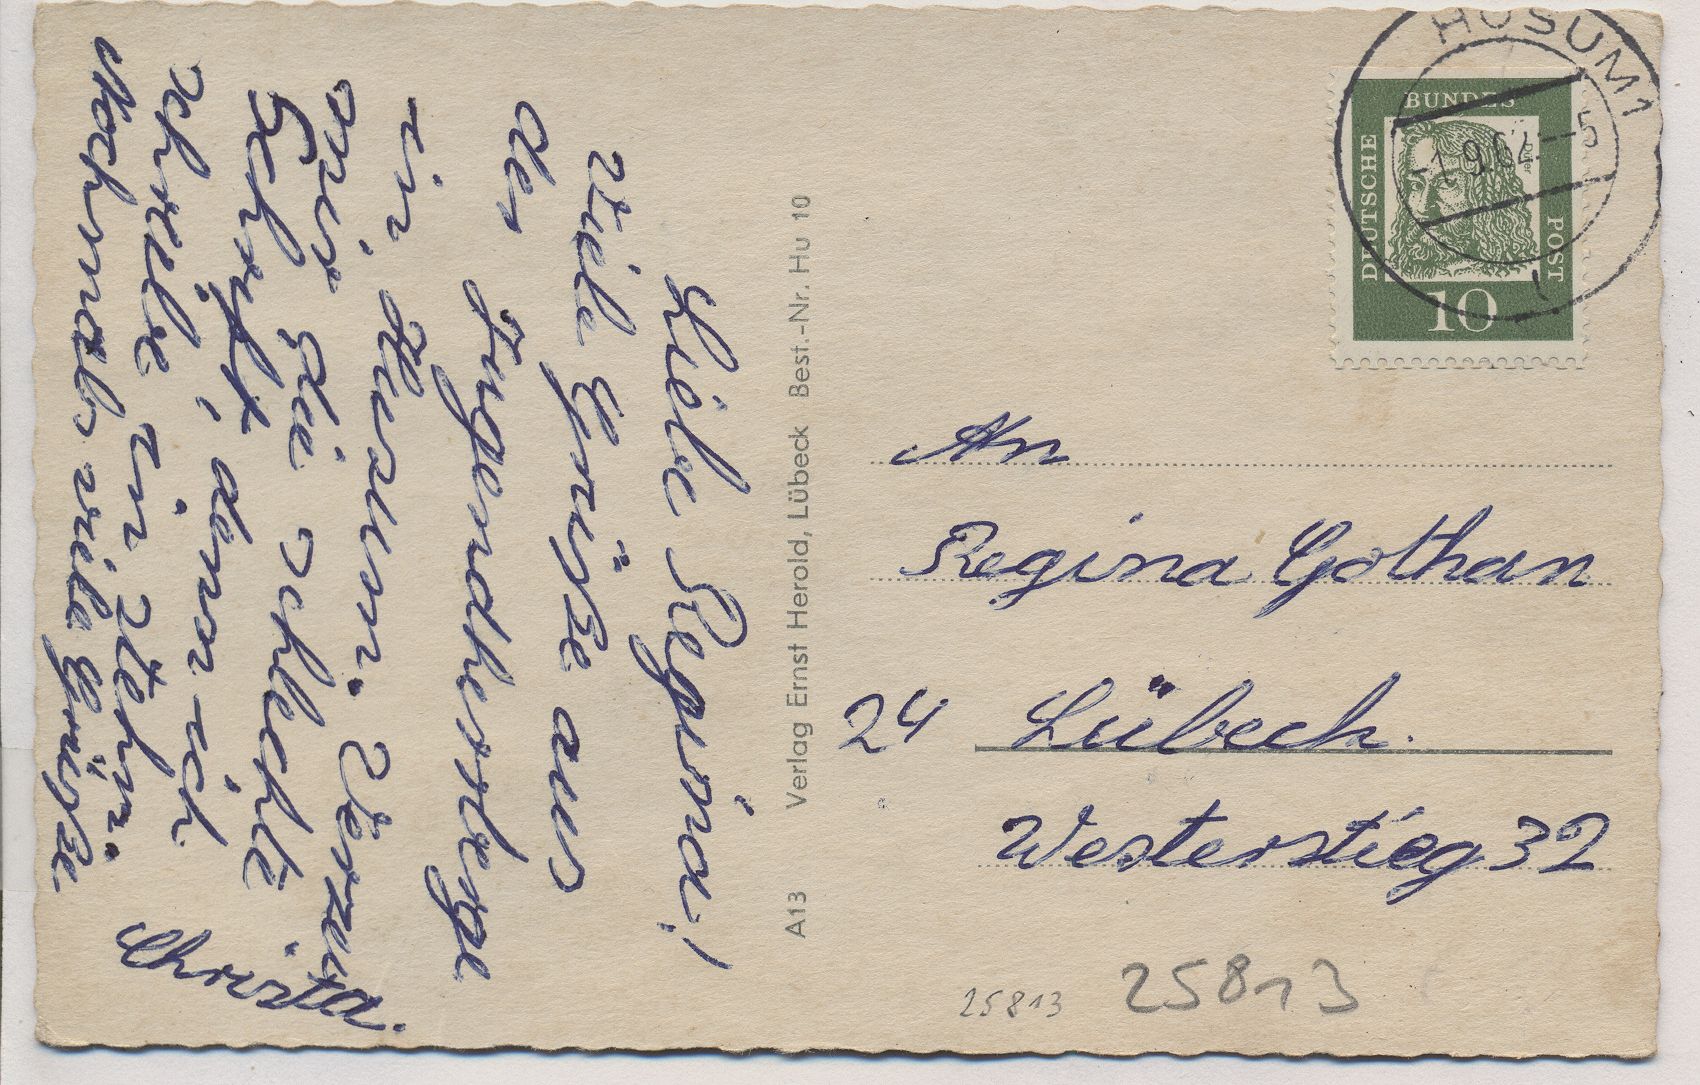 Liebe Regina!
Viele Grüße aus
der Jugendherberge
in Husum. Verzeih
mir die schlechte
Schrift, denn ich
schreibe im Stehn.
Nochmals viele Grüße
Christa.
A13 Verlag Ernst Herold, Lübeck Best.-Nr. Hu 10
HUSUM 1
-1.9.62.--5
DEUTSCHE
BUNDES
POST
Dürer
10
An
Regina Gothan
24 Lübeck.
Westerstieg 32
25813 25813